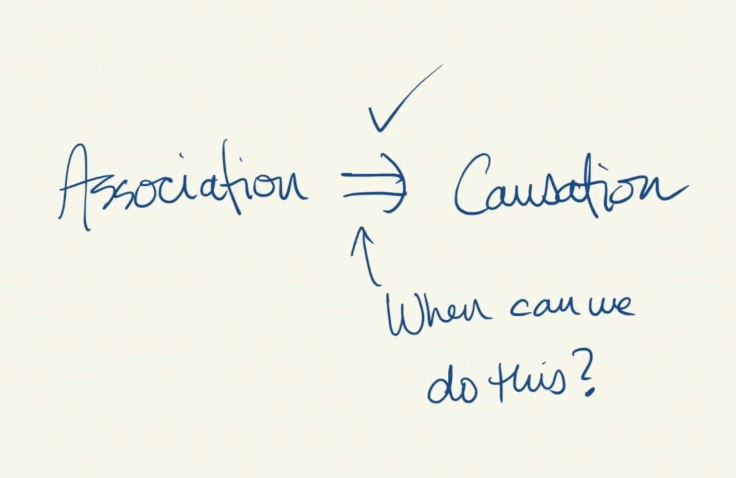 Association ⇒ Causation
When can we
do this?